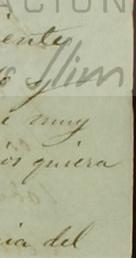 ACION
iente
o y
Slim
i muy
ios quiera
cia del